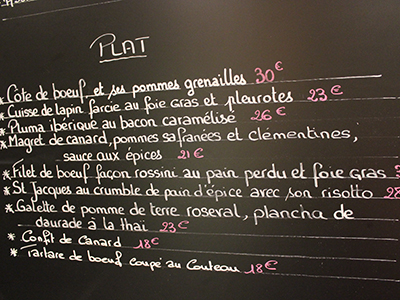 PLAT
* Côte de boeuf et ses pommes grenailles 30€
* Cuisse de lapin farcie au foie gras et pleurotes 23€
* Pluma ibérique au bacon caramélisé 26€
* Magret de canard, pommes safranées et clémentines,
sauce aux épices 21€
* Filet de boeuf façon rossini au pain perdu et foie gras
* St Jacques au crumble de pain d'épice avec son risotto 28
* Galette de pomme de terre roseval, plancha de
daurade à la thai 23€
* Confit de Canard 18€
* Tartare de boeuf coupé au Couteau 18€